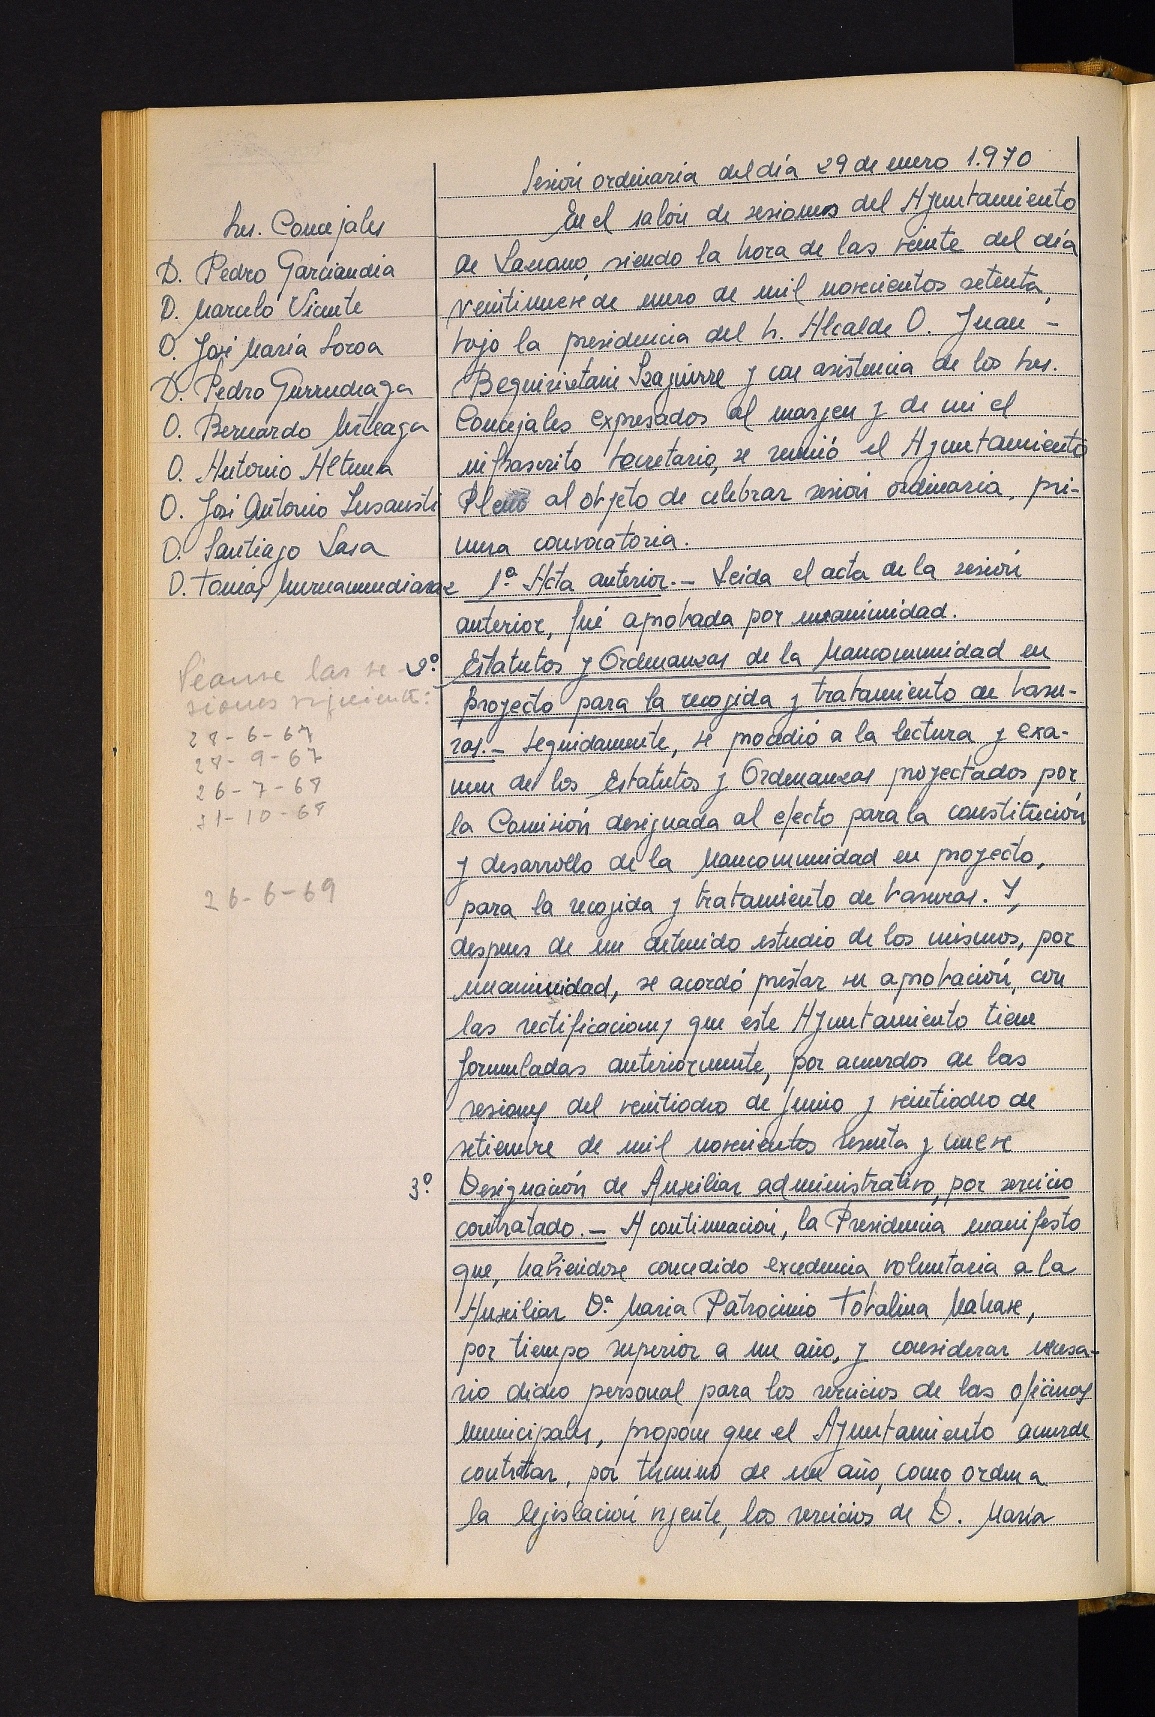 Sesión ordinaria del día 29 de enero 1.970
Srs. Concejales
D. Pedro Garciandia
D. Marcelo Vicente
D. José María Soroa
D. Pedro Gurrudiaga
D. Bernardo Urteaga
D. Antonio Altuna
D. José Antonio Insausti
D. Santiago Lasa
D. Tomás Murnamendiaraz
Véanse las se-
siones siguientes:
28-6-67
28-9-67
26-7-68
31-10-68
26-6-69
En el salón de sesiones del Ayuntamiento
de Lazcano, siendo la hora de las veinte del día
veintinueve de enero de mil novecientos setenta,
bajo la presidencia del Sr. Alcalde D. Juan -
Beguiristain Izaguirre y con asistencia de los Srs.
Concejales expresados al margen y de mi el
infrascrito Secretario, se reunió el Ayuntamiento
Pleno al objeto de celebrar sesión ordinaria, pri-
mera convocatoria.
1.ª Acta anterior.- Leída el acta de la sesión
anterior, fué aprobada por unanimidad.
2.º Estatutos y Ordenanzas de la Mancomunidad en
Proyecto para la recogida y tratamiento de basu-
ras.- Seguidamente, se procedió a la lectura y exa-
men de los Estatutos y Ordenanzas proyectados por
la Comisión designada al efecto para la constitución
y desarrollo de la Mancomunidad en proyecto,
para la recogida y tratamiento de basuras. Y,
despues de un detenido estudio de los mismos, por
unanimidad, se acordó prestar su aprobación, con
las rectificaciones que este Ayuntamiento tiene
formuladas anteriormente, por acuerdos de las
sesiones del veintiocho de junio y veintiocho de
setiembre de mil novecientos sesenta y nueve
3.º Designación de Auxiliar administrativo, por servicio
contratado.- A continuación, la Presidencia manifesto
que, habiendose concedido excedencia voluntaria a la
Auxiliar D.ª Maria Patrocinio Tobalina Mahave,
por tiempo superior a un año, y considerar necesa-
rio dicho personal para los servicios de las oficinas
municipales, propone que el Ayuntamiento acuerde
contratar, por término de un año, como ordena
la legislación vigente, los servicios de D. María